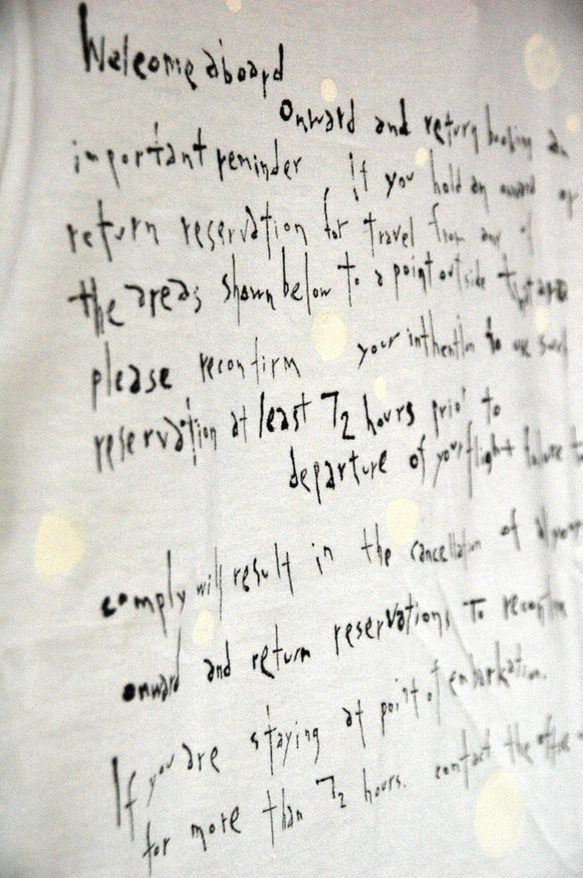 Welcome aboard
Onward and return booking an
important reminder If you hold an onward or
return reservation for travel from any of
the areas shown below to a point outside
please reconfirm your inthention to use such
reservation at least 72 hours prior to
departure of your flight failure to
comply will result in the cancellation of
onward and return reservations To reconfirm
If you are staying at point of embarkation.
for more than 72 hours. contact the office